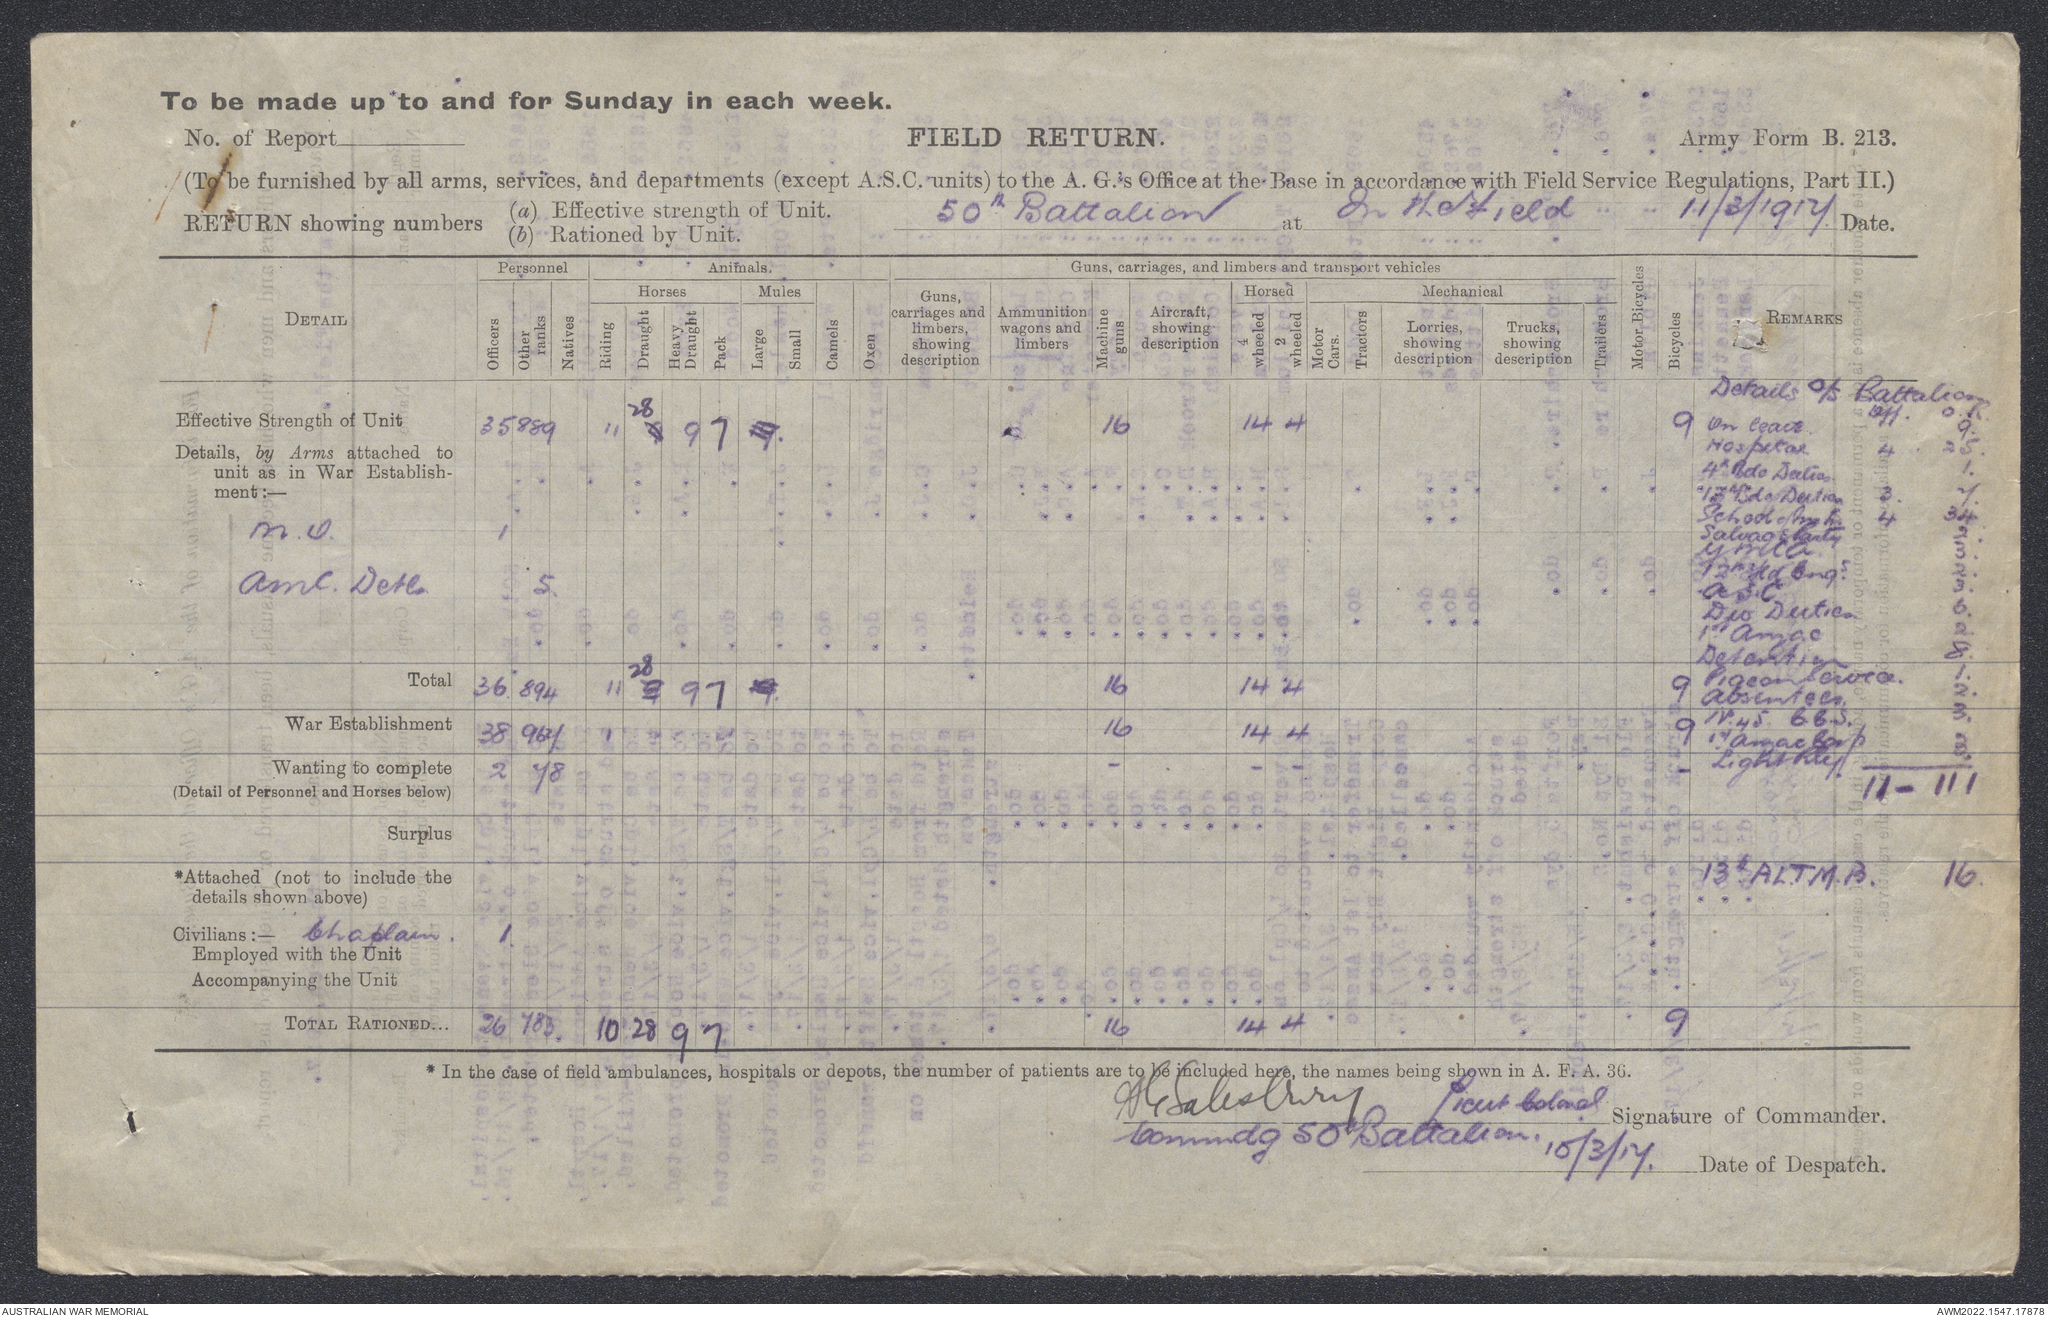 To be made up to and for Sunday in each week.
No. of Report
FIELD RETURN.
Army Form B. 213.
(To be furnished by all arms, services, and departments (except A.S.C. units) to the A. G.'s Office at the Base in accordance with Field Service Regulations, Part II.)
RETURN showing numbers
(a) Effective strength of Unit.
(b) Rationed by Unit.
50th Battalion at In the Field 11/3/1917. Date.
DETAIL
Personnel
Animals.
Guns, carriages, and limbers and transport vehicles
Horses
Mules
Horsed
Mechanical
Officers
Other ranks
Natives
Riding
Draught
Heavy Draught
Pack
Large
Small
Camels
Oxen
Guns, carriages and limbers, showing description
Ammunition wagons and limbers
Machine guns
Aircraft, showing description
4 wheeled
2 wheeled
Motor Cars.
Tractors
Lorries, showing description
Trucks, showing description
Trailers
Motor Bicycles
Bicycles
REMARKS
Effective Strength of Unit 35 889 11 28 9 7 16 14 4 9
Details, by Arms attached to unit as in War Establishment:—
M.O. 1
Details O/S Battalion
Off. O.R.
On leave. 9.
Hospital 4
4th Bde Duties 1.
13th Bde Duties 3. 7.
4 34
Salvage Party
Y.M.C.A.
A.S.C.
Div Duties
1st Anzac
Detention
Pigeon Service.
Absentees.
1st Anzac Corp
Light Rly
11 - 111
AMC. Dets. 5.
Total 36 894 11 28 9 7 16 14 4 9
War Establishment 38 967 16 14 4 9
Wanting to complete 2 78
(Detail of Personnel and Horses below)
Surplus
*Attached (not to include the details shown above)
13th A.L.T.M.B. 16.
Civilians:— Chaplain. 1.
Employed with the Unit
Accompanying the Unit
TOTAL RATIONED... 26 783. 10 28 9 7 16 14 4 9
* In the case of field ambulances, hospitals or depots, the number of patients are to be included here, the names being shown in A. F. A. 36.
Salesbury Lieut Colonel Signature of Commander.
Commdg 50th Battalion.
10/3/17. Date of Despatch.
AUSTRALIAN WAR MEMORIAL
AWM2022.1547.17878